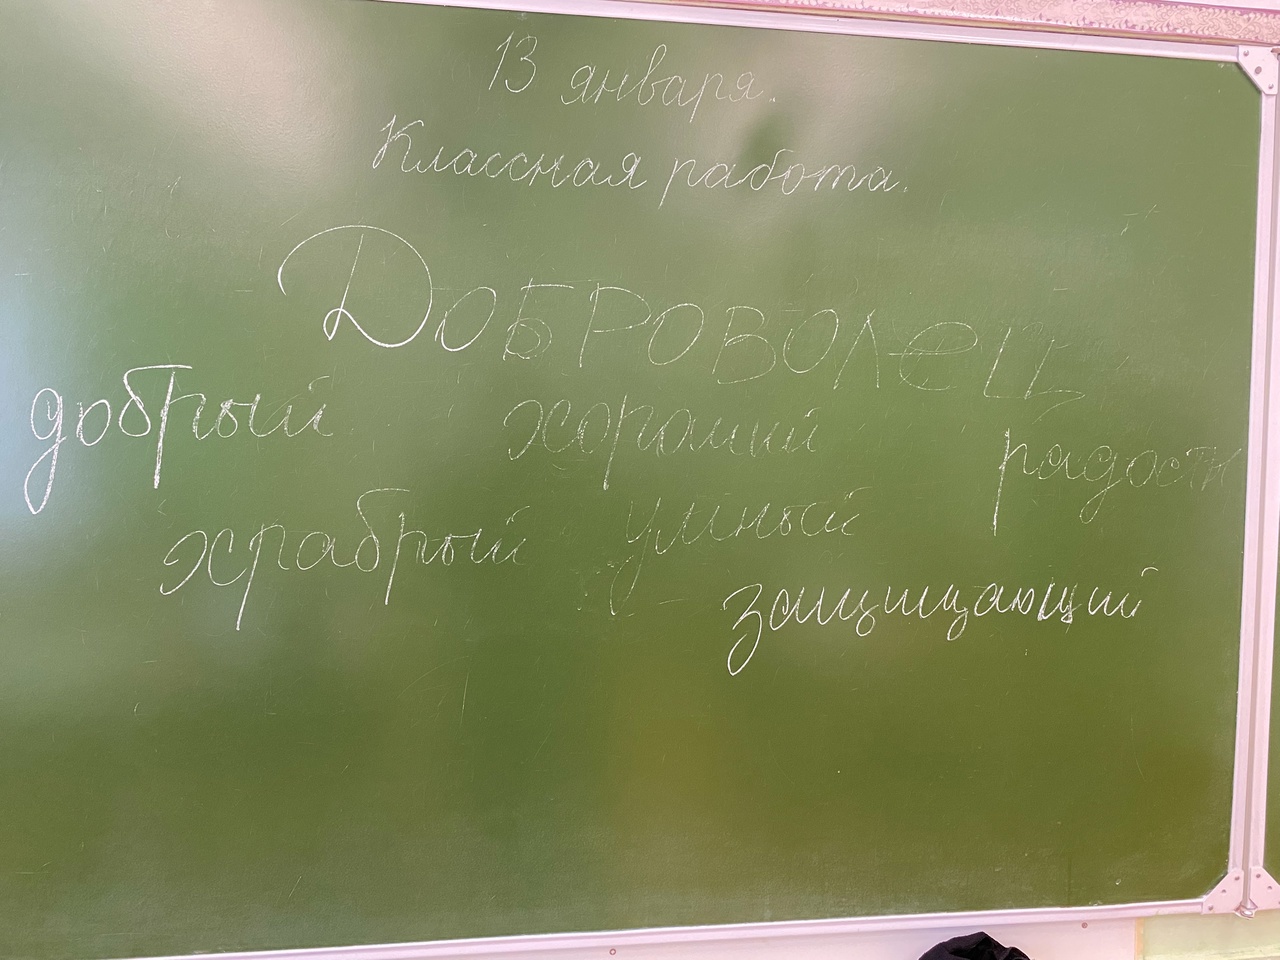 13 января.
Классная работа.
ДОБРОВОЛЕЦ
добрый хороший радостн
храбрый умный
защищающий